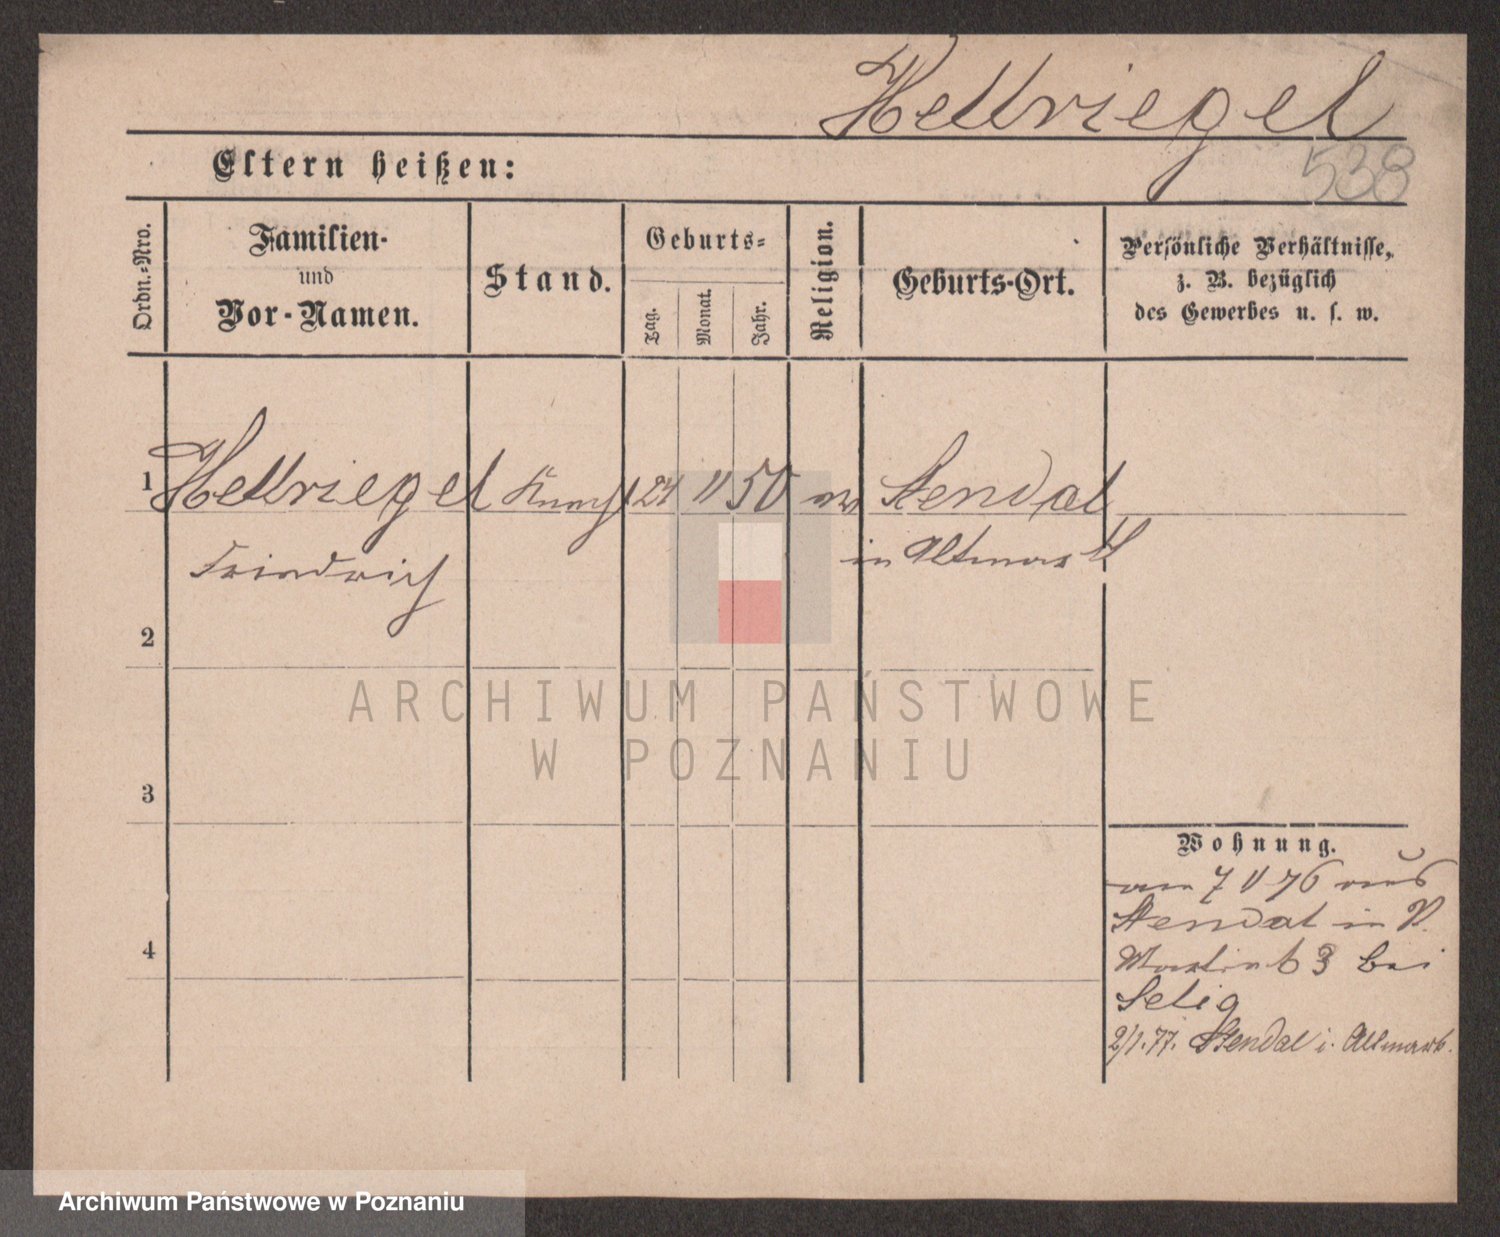 Hellriegel
Eltern heißen:
538
Ordn.-Nro.
Familien-
und
Vor-Namen.
Stand.
Geburts-
Tag.
Monat.
Jahr.
Religion.
Geburts-Ort.
Persönliche Verhältnisse,
z. B. bezüglich
des Gewerbes u. s. w.
1 Hellriegel Knecht 24 11 50 ev Stendal
Friedrich in Altmark
2
ARCHIWUM PAŃSTWOWE
W POZNANIU
3
4
Wohnung.
7 11 76 aus
Stendal in
Martin 63 bei
Selig
2/1.77. Stendal i. Altmark.
Archiwum Państwowe w Poznaniu